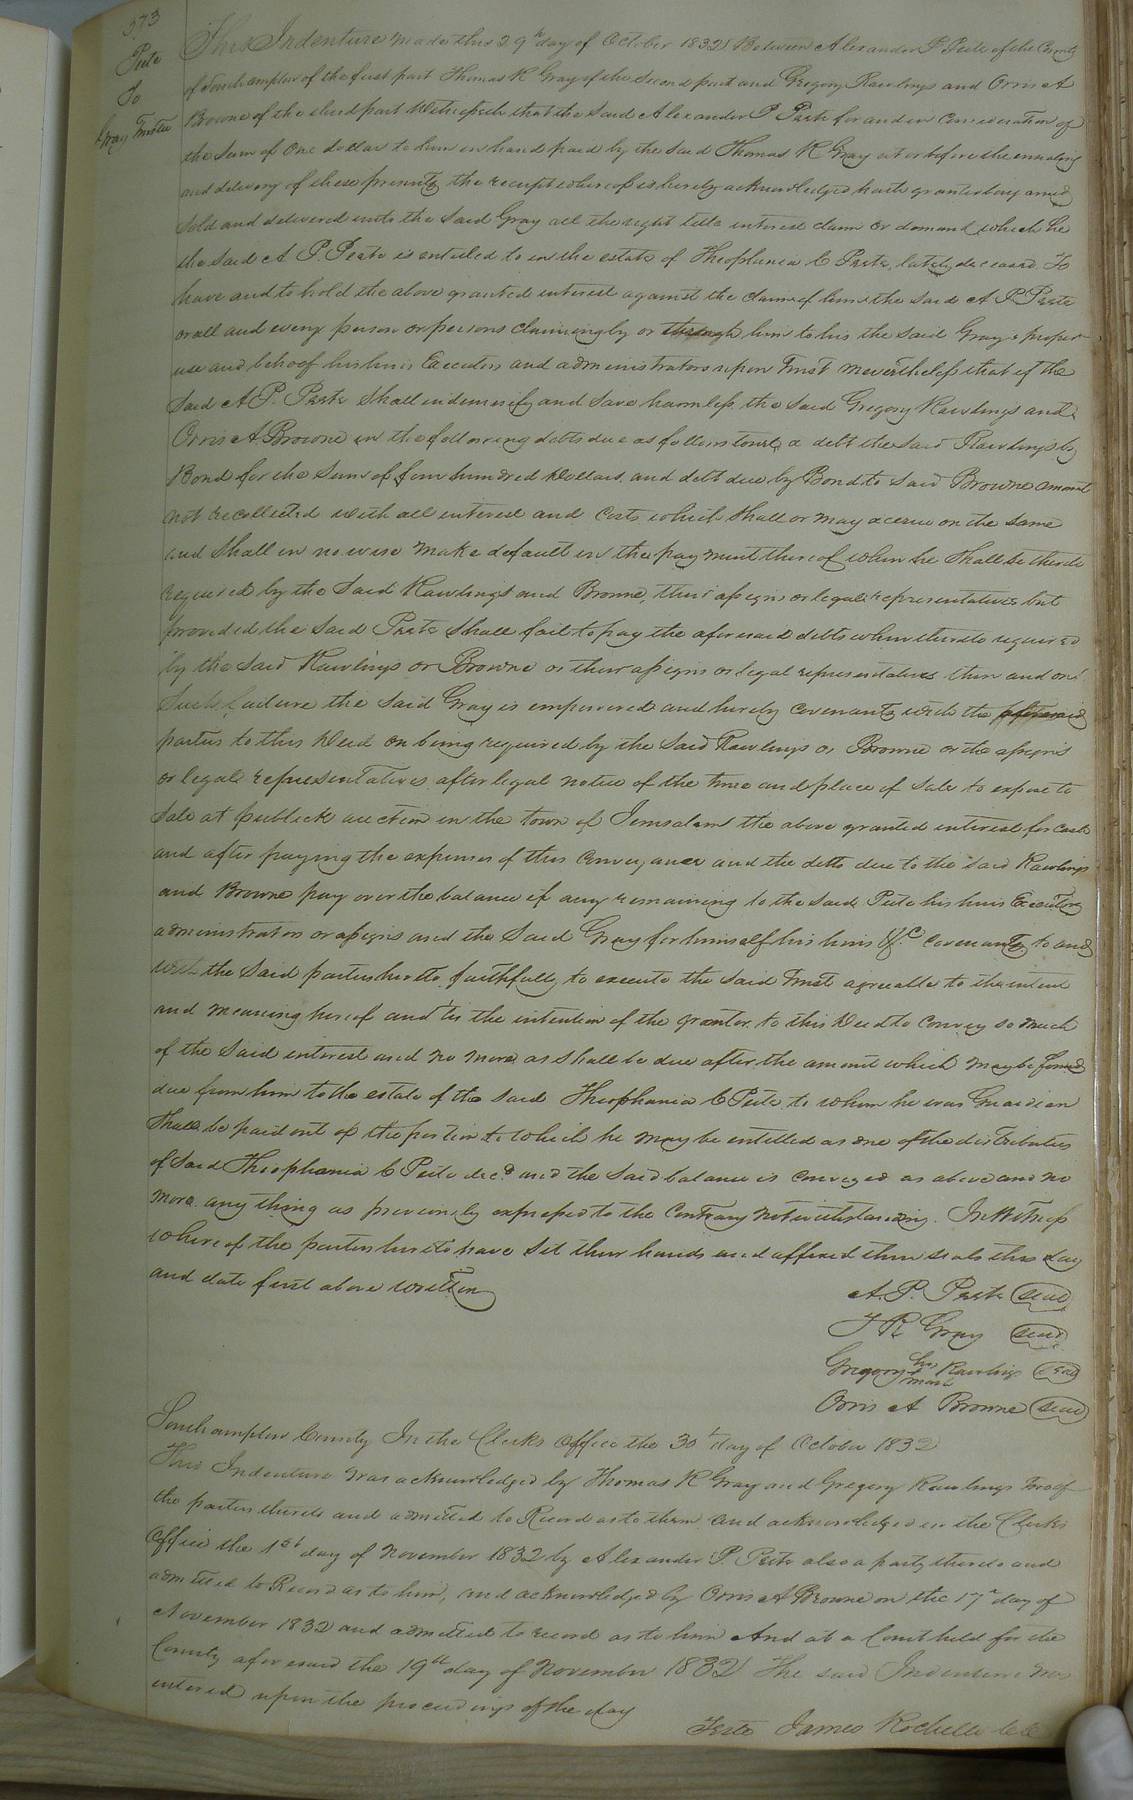 373
Pete
To
Gray Trustee
This Indenture made this 29th day of October 1832 Between Alexander P Pete of the County
of Southampton of the first part Thomas R Gray of the second part and Gregory Rawlings and Orris A
Browne of the third part Witnesseth that the said Alexander P Pete for and in consideration of
the sum of One dollar to him in hand paid by the said Thomas R Gray at or before the ensealing
and delivery of these presents the receipt whereof is hereby acknowledged hath granted bargained
sold and delivered unto the said Gray all the right title interest claim or demand which he
the said A P Pete is entitled to in the estate of Theophania C Pete, lately deceased To
have and to hold the above granted interest against the claims of him the said A P Pete
or all and every person or persons claiming by or through him to his the said Gray's proper
use and behoof his heirs Executors and administrators upon Trust nevertheless that if the
said A. P. Pete shall indemnify and save harmless the said Gregory Rawlings and
Orris A Browne in the following debts due as follows towit, a debt the said Rawlings by
Bond for the sum of four hundred dollars and debt due by Bond to said Browne amount
not recollected with all interest and costs which shall or may accrue on the same
and shall in no wise make default in the payment thereof when he shall be thereto
required by the said Rawlings and Browne, their assigns or legal representatives but
provided the said Pete shall fail to pay the aforesaid debts when thereto required
by the said Rawlings or Browne or their assigns or legal representatives then and on
such failure the said Gray is empowered and hereby covenants with the aforesaid
parties to this Deed on being required by the said Rawlings or Browne or the assigns
or legal representatives after legal notice of the time and place of sale to expose to
sale at publick auction in the town of Jerusalem the above granted interest for cash
and after paying the expenses of this conveyance and the debts due to the said Rawlings
and Browne pay over the balance if any remaining to the said Pete his heirs Executors
administrators or assigns and the said Gray for himself his heirs &c covenants to and
with the said parties hereto faithfully to execute the said Trust agreeable to the intent
and meaning hereof and tis the intention of the grantor to this Deed to convey so much
of the said interest and no more as shall be due after the amount which may be found
due from him to the estate of the said Theophania C Pete to whom he was Guardian
shall be paid out of the portion to which he may be entitled as one of the distributees
of said Theophania C Pete decd and the said balance is conveyed as above and no
more any thing as previously expressed to the contrary notwithstanding. In Witness
whereof the parties hereto have set their hands and affixed their seals this day
and date first above written
A. P. Pete seal
T R Gray seal
Gregory his mark Rawlings seal
Orris A Browne seal
Southampton County In the Clerks Office the 30th day of October 1832
This Indenture was acknowledged by Thomas R Gray and Gregory Rawlings two of
the parties thereto and admitted to Record as to them and acknowledged in the Clerks
Office the 1st day of November 1832 by Alexander P. Pete also a party thereto and
admitted to Record as to him, and acknowledged by Orris A Browne on the 17th day of
November 1832 and admitted to record as to him And at a Court held for the
County aforesaid the 19th day of November 1832 The said Indenture was
entered upon the proceedings of the day
Teste James Rochelle